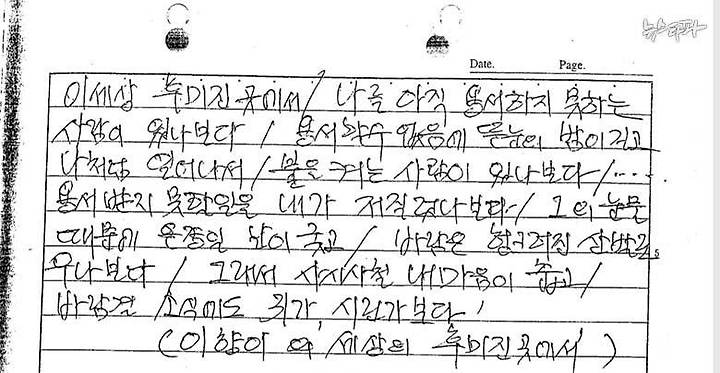 뉴스타파
Date. Page.
이세상 후미진 곳에서/ 나를 아직 용서하지 못하는
사람이 있나보다 / 용서할수 없음에 뜬눈의 밤이 깊고
나처럼 일어나서/ 불을 켜는 사람이 있나보다/····
용서받지 못할일을 내가 저질렀나보다/ 그의 눈물
때문에 온종일 날이 궂고/ 바람은 헝크러진 산발로
우나보다 / 그래서 사시사철 내마음이 춥고/
바람결 소식에도 귀가, 시린가보다'
(이향아 의 세상의 후미진 곳에서)